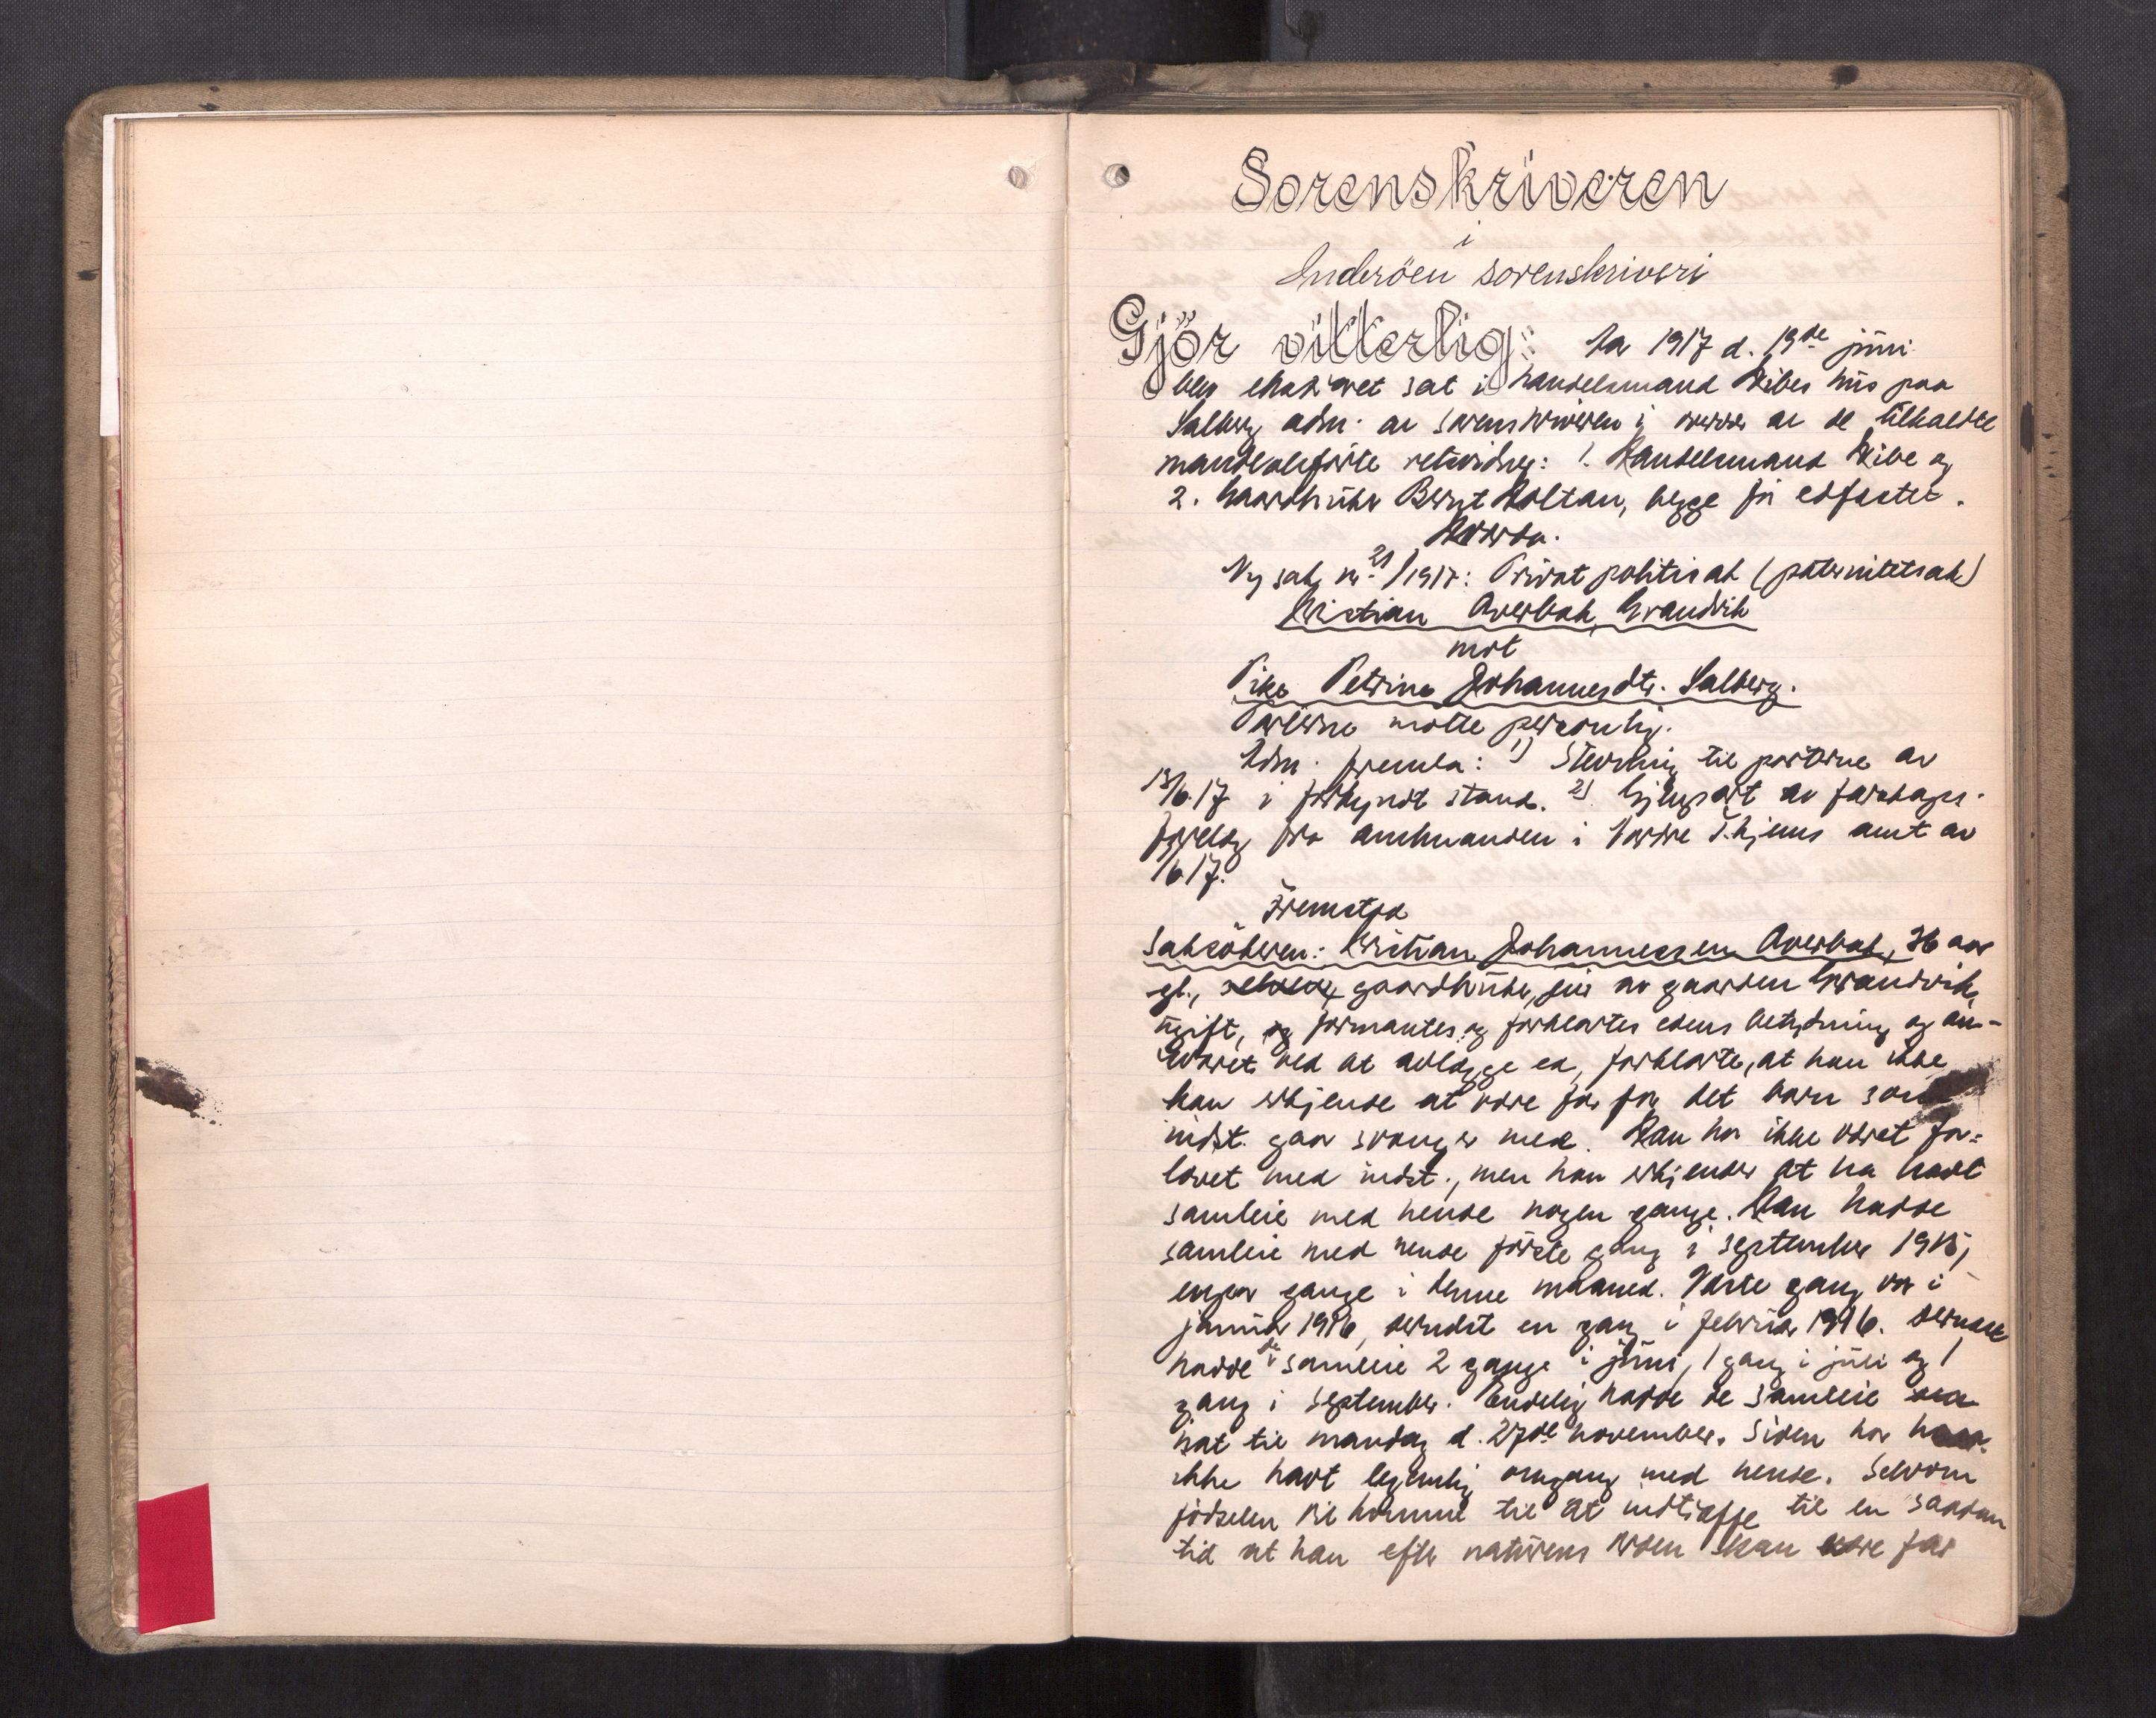 Sorenskriveren
i
Inderöen sorenskriveri
Gjör vitterlig: Aar 1917 d. 19de juni
blev ekstraret sat i handelsmand Skibes hus paa
Salberg adm. av sorenskriveren i overvær av de tilkaldte
mandevalgførte retsvidner: 1. Handelsmand Skibe og
2. Gaardbruker Bernt Holtan, begge før edfæstet.
Hvorda.
Ny sak nr. 21/1917: Privat politisak (paternitetsak)
Kristian Overbak, Grandvik
mot
Pike Petrine Johannesdtr. Salberg.
Parterne møtte personlig.
Adm. fremla: 1) Stevning til parterne av
13/6.17 i forkyndt stand. 2) Gjenpart av farskaps-
forelæg fra amtmanden i Nordre T.hjems amt av
/6 17.
Fremstod
Saksökeren: Kristian Johannessen Overbak, 36 aar
gl., gaardbruker, eier av gaarden Grandvik,
ugift, og formantes og forklartes edens betydning og an-
svaret ved at avlægge ed, forklarte, at han ikke
kan erkjende at være far for det barn som
indst. gaar svanger med. Han har ikke været for-
lovet med indst., men han erkjender at ha havt
samleie med hende nogen gange. Han hadde
samleie med hende første gang i september 1915,
en gange i denne maaned. Næste gang var i
januar 1916, dernæst en gang i februar 1916. Dernæst
hadde de samleie 2 gange i juni, 1 gang i juli og 1
gang i september. Endelig hadde de samleie
nat til mandag d. 27de november. Siden har han
ikke havt legemlig omgang med hende. Selvom
fødselen vil komme til at indtræffe til en saadan
tid at han efter naturens orden kan være far